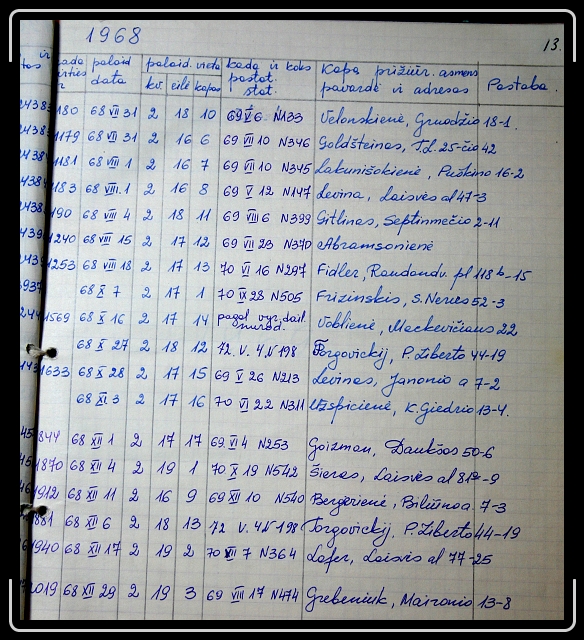 1968
13.
palaid. data
palaid. vieta
kv. eilė kapas
kada ir koks pastat. stat.
Kapą prižiūr. asmens pavardė ir adresas
Pastaba
180 68 VII 31 2 18 10 69 V 6. N133 Velonskienė, Gruodžio 18-1.
1179 68 VII 31 2 16 6 69 VII 10 N346 Goldšteinas, T.L. 25-čio 42
1181 68 VIII 1 2 16 7 69 VII 10 N345 Lakunišokienė, Puškino 16-2
183 68 VIII.1 2 16 8 69 V 12 N147 Levina, Laisvės al 47-3
190 68 VIII 4 2 18 11 69 VIII 6 N399 Gitlinas, Septinmečio 2-11
1240 68 VIII 15 2 17 12 69 VII 23 N370 Abramsonienė
1253 68 VIII 18 2 17 13 70 VI 16 N297 Fidler, Raudondv. pl 118b-15
937 68 X 7 2 17 1 70 IX 28 N505 Frizinskis, S.Neries 52-3
1569 68 X 16 2 17 14 pagal vyr. dail. nurod. Voblienė, Mackevičiaus 22
68 X 27 2 18 12 72. V. 4. N 198 Torgovickij, P. Ziberto 44-19
1633 68 X 28 2 17 15 69 V 26 N213 Levinas, Janonio a 7-2
68 XI 3 2 17 16 70 VI 22 N311 K. Giedrio 13-4.
1844 68 XII 1 2 17 17 69 VI 4 N253 Goizman, Daukšos 50-6
1870 68 XII 4 2 19 1 70 X 19 N542 Šieras, Laisvės al 81a-9
1912 68 XII 11 2 16 9 69 XII 10 N540 Bergerienė, Biliūno a. 7-3
1881 68 XII 6 2 18 13 72 V. 4 N 198 Torgovickij, P. Ziberto 44-19
1940 68 XII 17 2 19 2 70 VII 7 N364 Lafer, Laisvės al 77-25
2019 68 XII 29 2 19 3 69 VIII 17 N474 Grebeniuk, Maironio 13-8